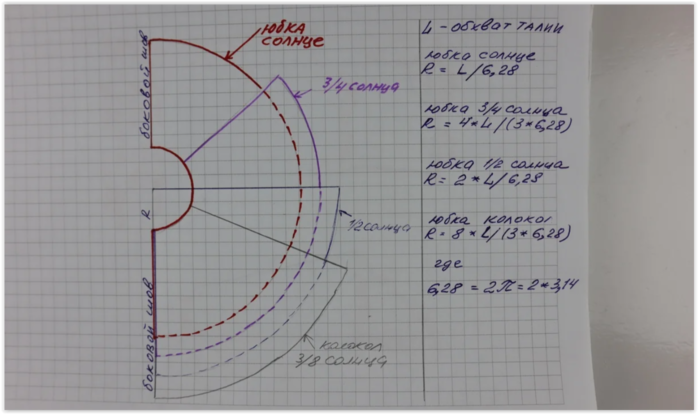 юбка
солнце
боковой шов
3/4 солнца
R
1/2 солнца
боковой шов
колокол
3/8 солнца
L - обхват талии
юбка солнце
R = L/6,28
юбка 3/4 солнца
R = 4*L/(3*6,28)
юбка 1/2 солнца
R = 2*L/6,28
юбка колокол
R = 8*L/(3*6,28)
где
6,28 = 2π = 2*3,14